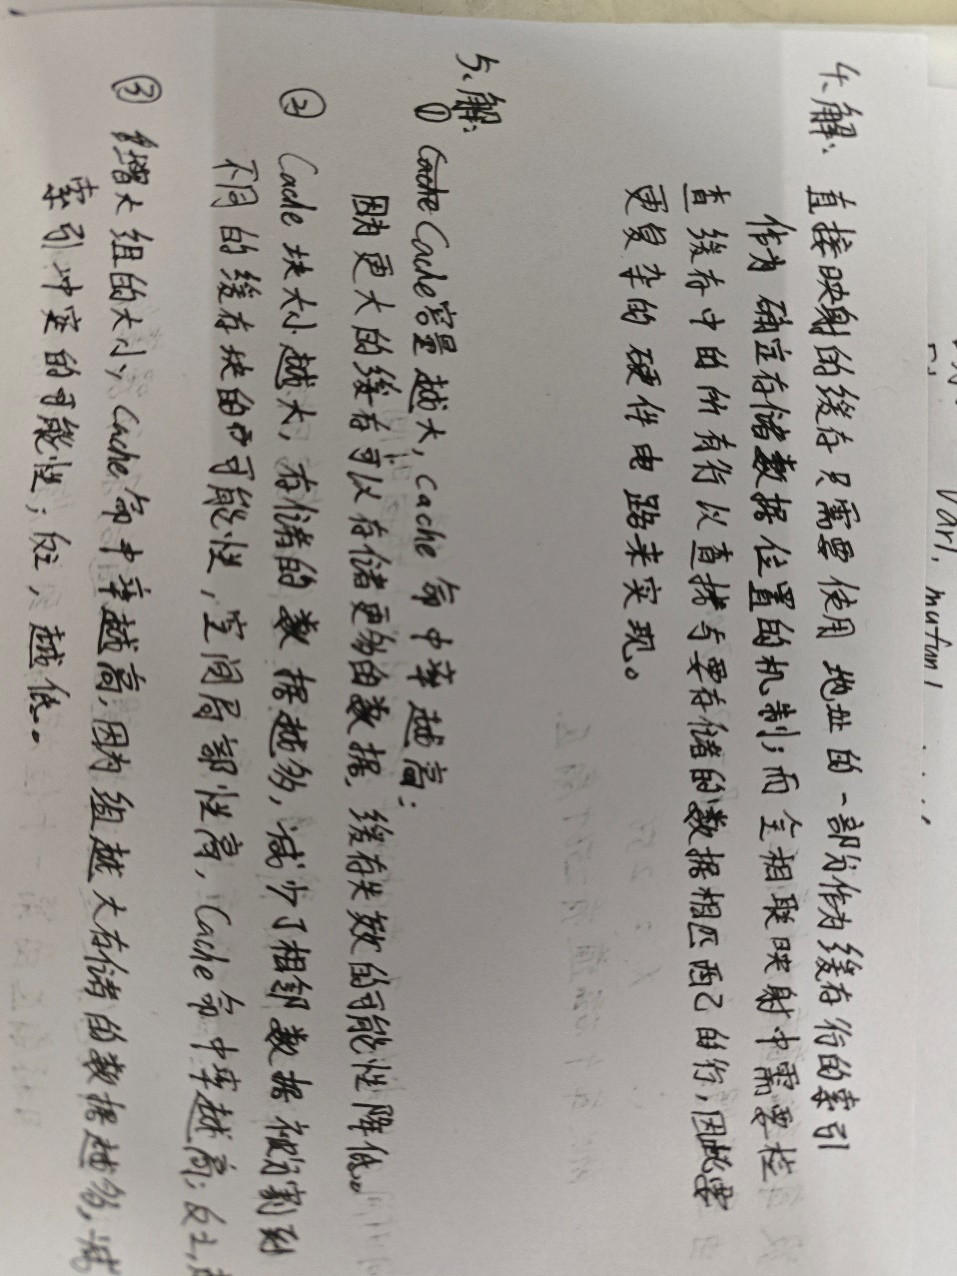 Var1, mutum1 . . . . ,
4、解: 直接映射的缓存只需要使用地址的一部分作为缓存行的索引
作为确定存储数据位置的机制;而全相联映射中需要检
查缓存中的所有行以查找与要存储的数据相匹配的行,因此需
更复杂的硬件电路来实现。
5、解:
① Cache容量越大,Cache命中率越高;
因为更大的缓存可以存储更多的数据,缓存失效的可能性降低。
② Cache块大小越大,存储的数据越多,减少了相邻数据被分割到
不同的缓存块的可能性,空间局部性高,Cache命中率越高;反之,
③ 增大组的大小,Cache命中率越高,因为组越大存储的数据越多,减
索引冲突的可能性;反之,越低。